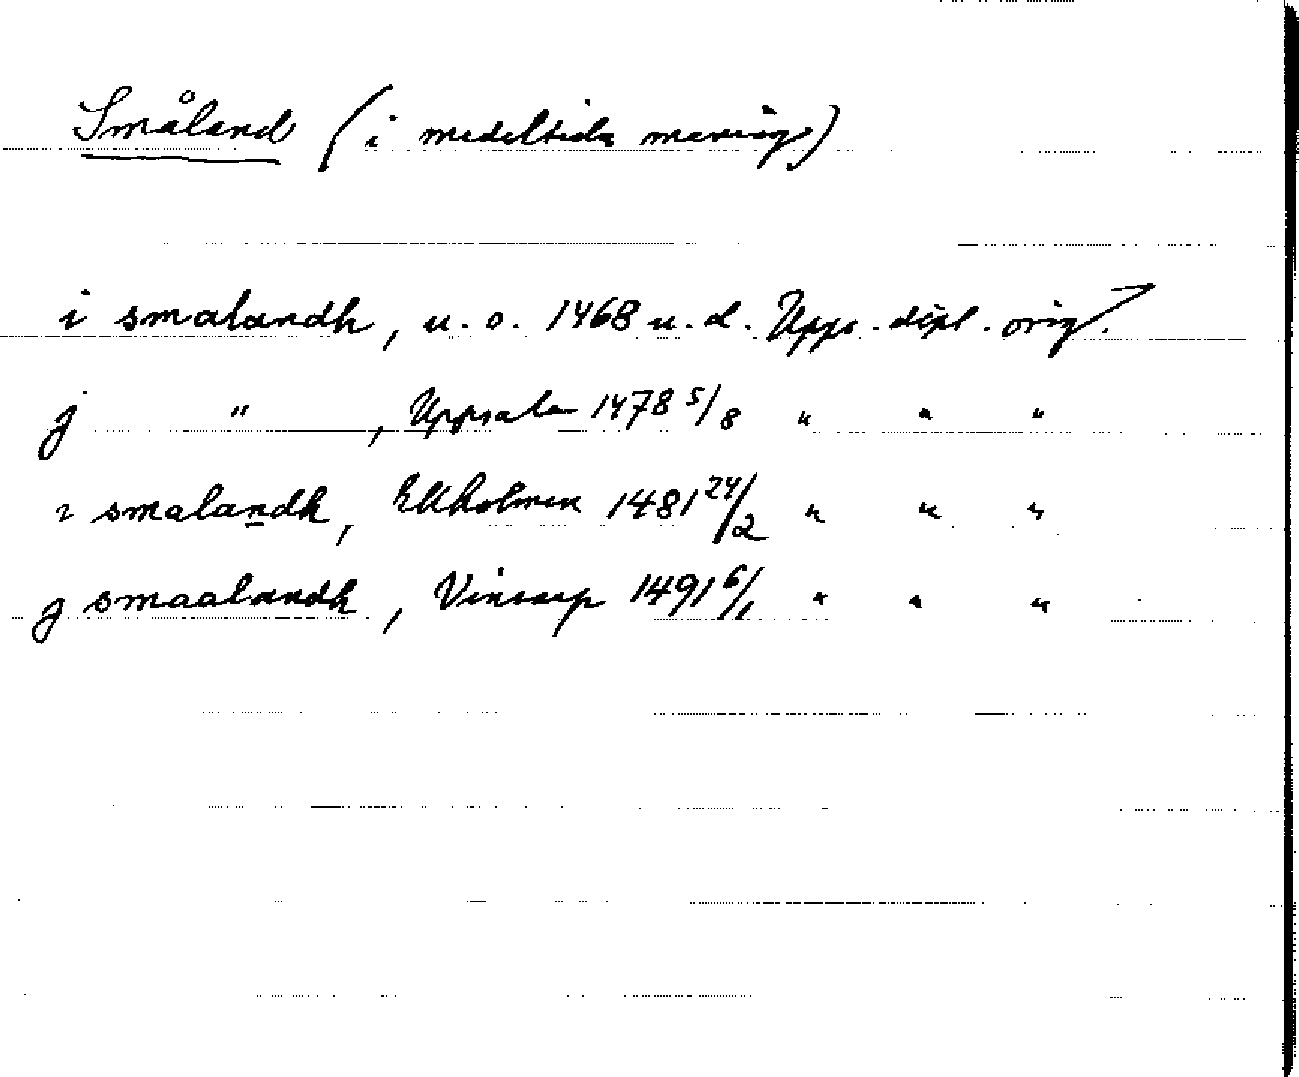 Småland (i medeltida mening)
i smalandh, u.o. 1468 u.d. Upps. dipl. orig.
j " , Uppsala 1478 5/8 " " "
i smalandh, Ekholmen 1481 24/2 " " "
j smaalandh, Vinsarp 1491 6/1 " " "